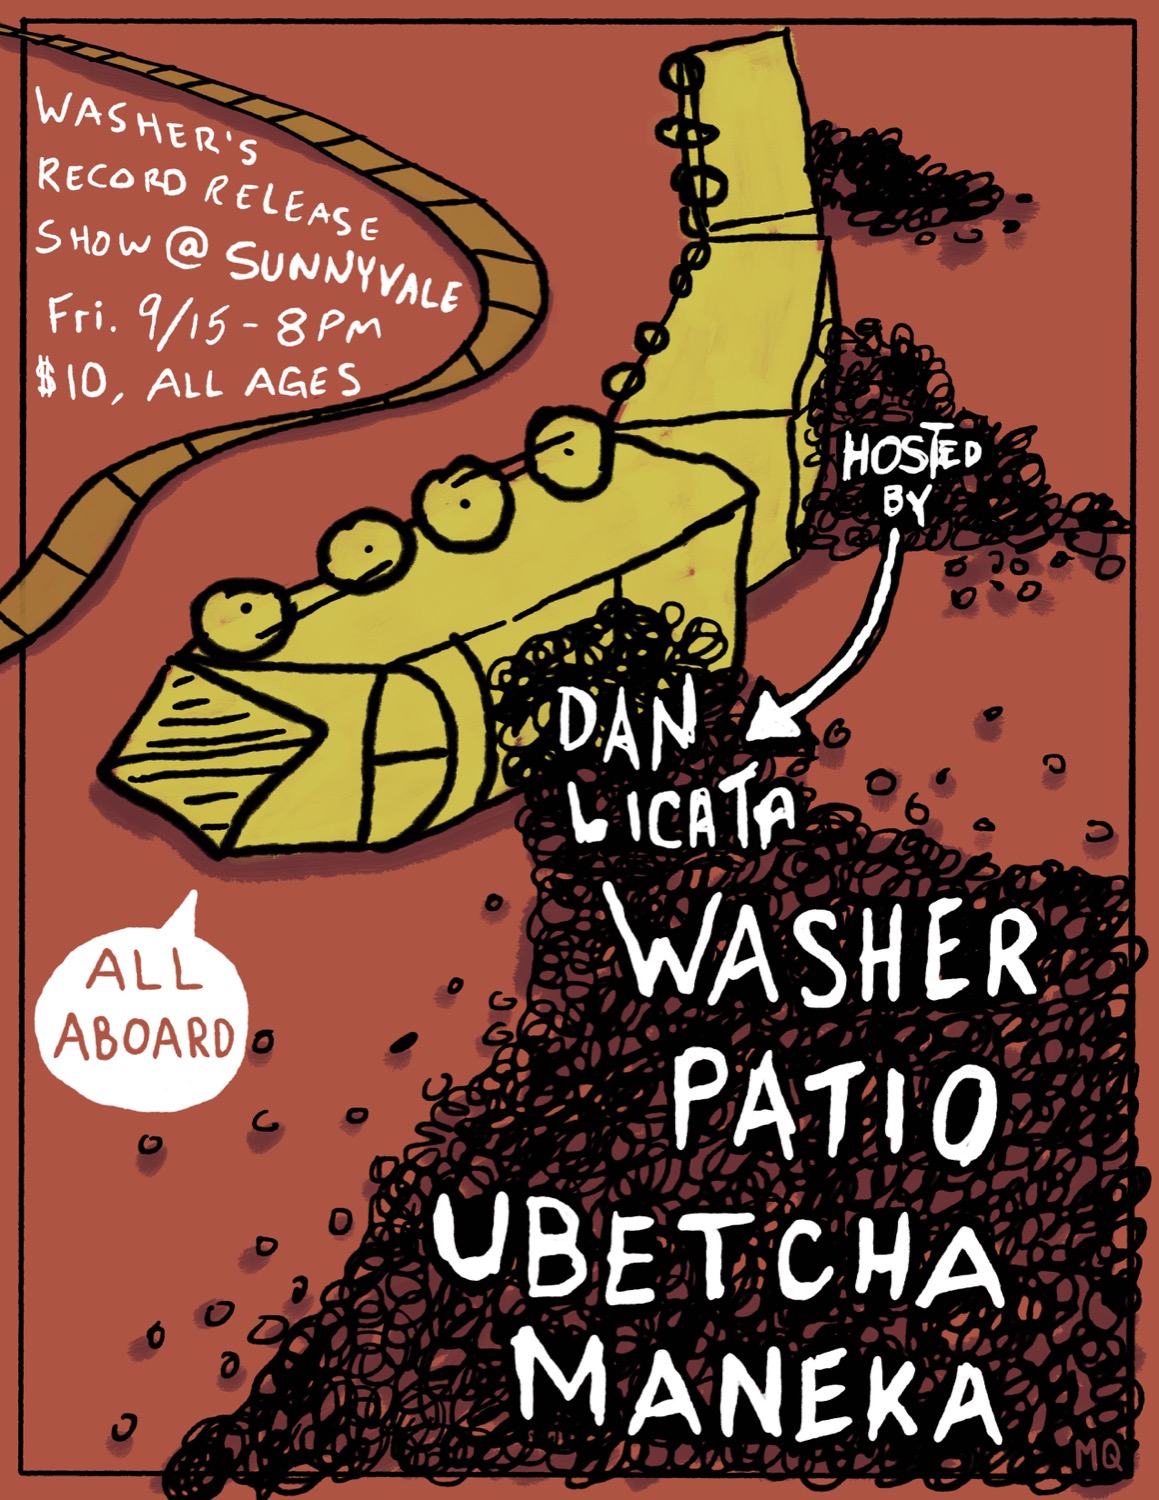 WASHER'S
RECORD RELEASE
SHOW @ SUNNYVALE
Fri. 9/15 - 8PM
$10, ALL AGES
HOSTED
BY
DAN
LICATA
WASHER
PATIO
UBETCHA
MANEKA
ALL
ABOARD
MQ